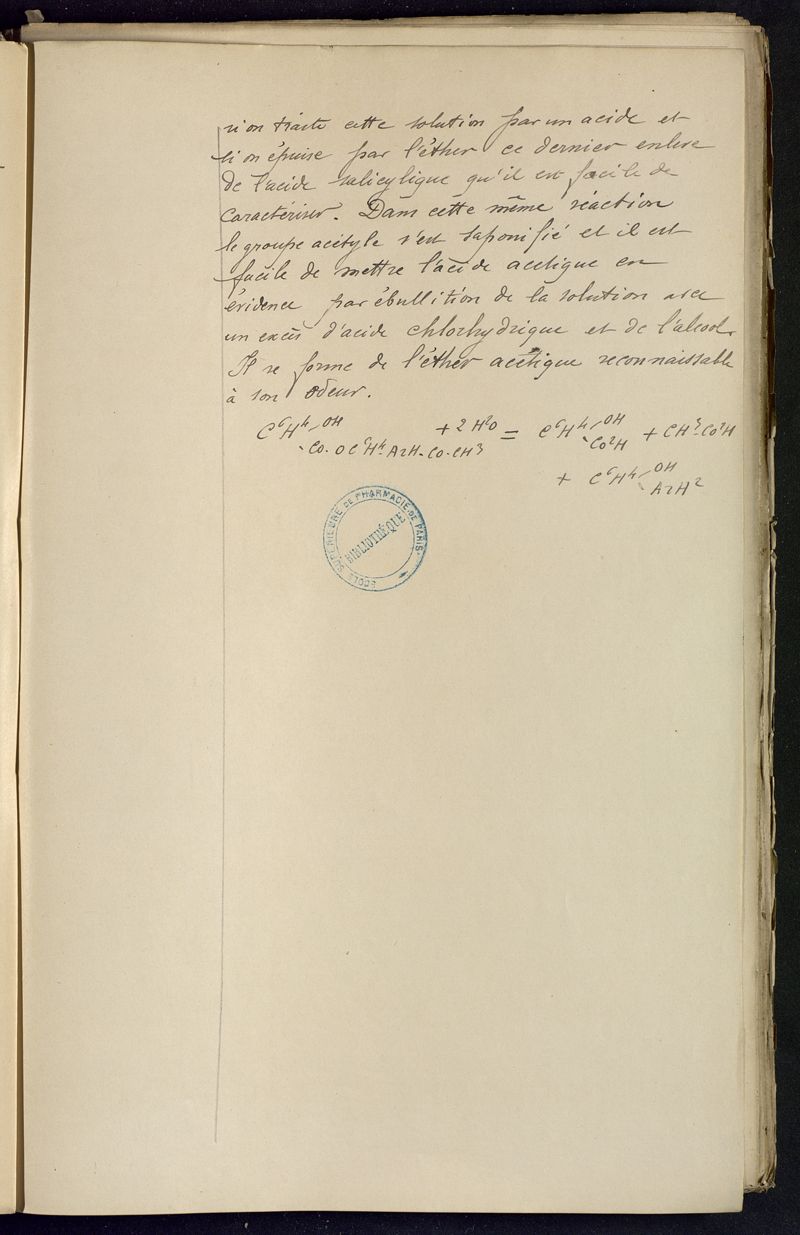 si on traite cette solution par un acide et
si on épuise par l'éther ce dernier enlève
de l'acide salicylique qu'il est facile de
caractériser. Dans cette même réaction
le groupe acétyle s'est saponifié et il est
facile de mettre l'acide acétique en
évidence par ébullition de la solution avec
un excès d'acide chlorhydrique et de l'alcool.
Il se forme de l'éther acétique reconnaissable
à son odeur.
C⁶H⁴ OH CO.OC⁶H⁴AzH-CO-CH³ + 2H²O = C⁶H⁴ OH CO²H + CH³-CO²H
+ C⁶H⁴ OH AzH²
ECOLE SUPERIEURE DE PHARMACIE DE PARIS
BIBLIOTHÉQUE